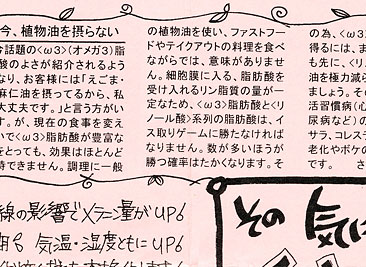 今、植物油を摂らない
今話題の<ω3>(オメガ3)脂
酸のよさが紹介されるよう
なり、お客様には「えごま・
麻仁油を摂ってるから、私
大丈夫です。」と言う方がい
す。が、現在の食事を変え
いで<ω3>脂肪酸が豊富な
をとっても、効果はほとんど
待できません。調理に一般
の植物油を使い、ファストフー
ドやテイクアウトの料理を食べ
ながらでは、意味がありませ
ん。細胞膜に入る、脂肪酸を
受け入れるリン脂質の量が一
定なため、<ω3>脂肪酸と<リ
ノール酸>系列の脂肪酸は、イ
ス取りゲームに勝たなければ
なりません。数が多いほうが
勝つ確率はたかくなります。そ
の為、<ω3
得るには、ま
も先に、<リ
油を極力減ら
ます。その
活習慣病(心
尿病など)の
サラ、コレステ
老化やボケの
です。さ
線の影響でメラニン量がUP6
気温・湿度ともにUP6
その 気に